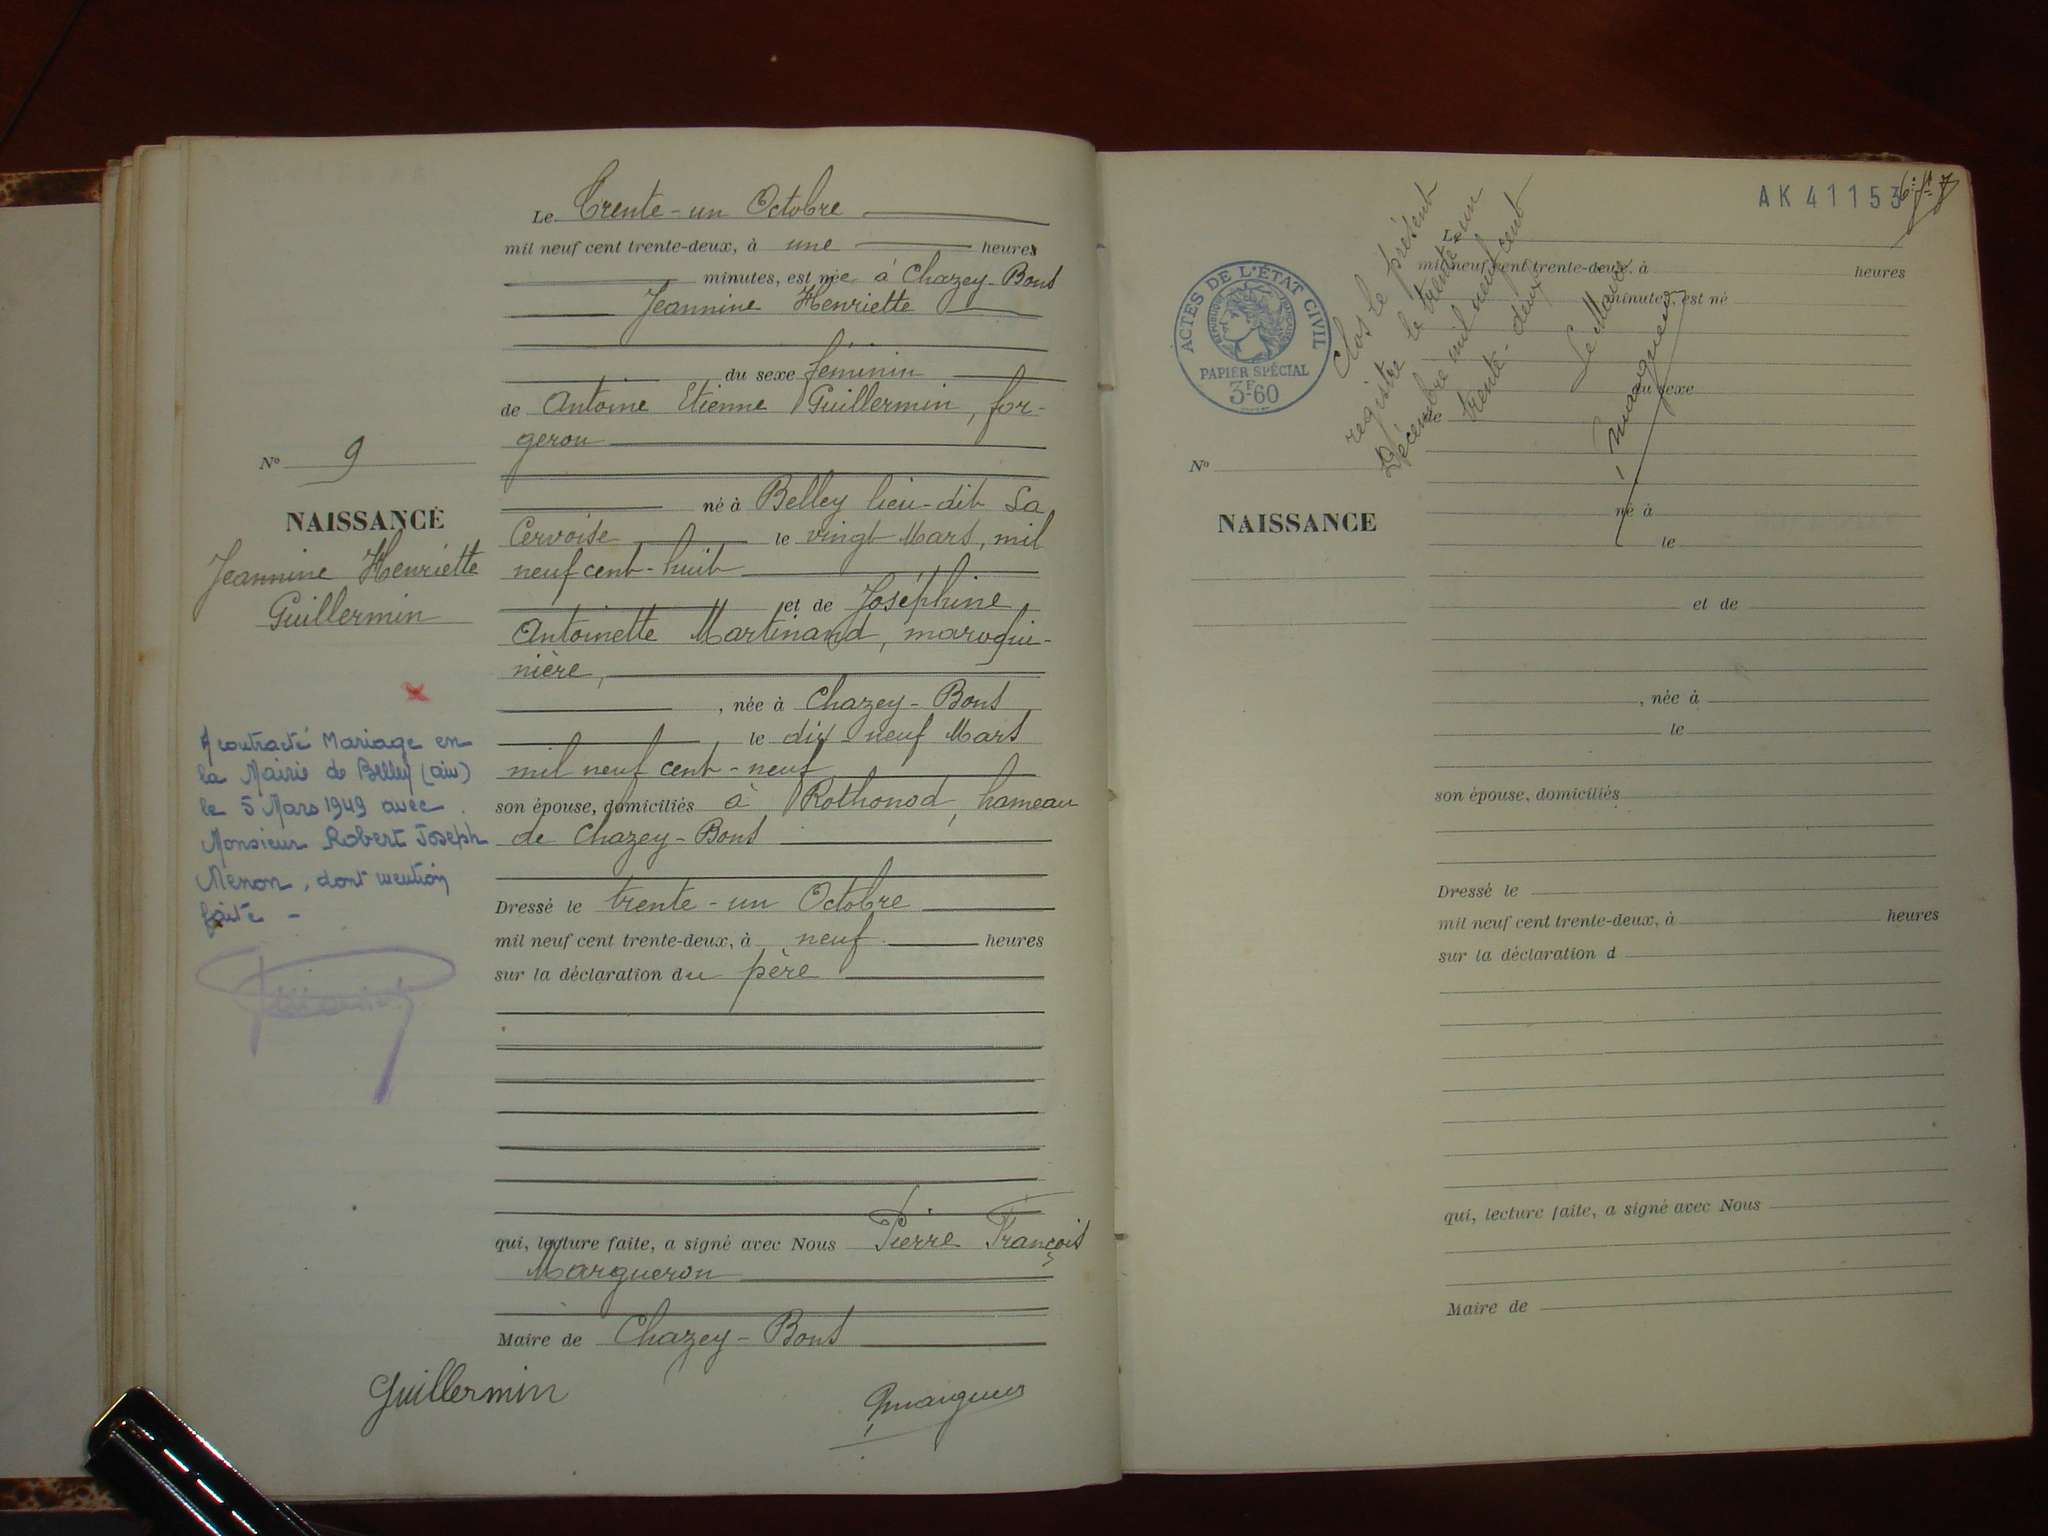 Le Trente-un Octobre
mil neuf cent trente-deux, à une heures
minutes, est née à Chazey-Bons
Jeannine Henriette
du sexe féminin
de Antoine Etienne Guillermin, for-
geron
né à Belley lieu-dit La
Cervoise le vingt Mars, mil
neuf cent-huit
et de Joséphine
Antoinette Martinand, maroqui-
nière,
, née à Chazey-Bons
le dix-neuf Mars
mil neuf cent-neuf
son épouse, domiciliés à Rothonod, hameau
de Chazey-Bons
Dressé le trente-un Octobre
mil neuf cent trente-deux, à neuf heures
sur la déclaration du père
qui, lecture faite, a signé avec Nous Pierre François
Margueron
Maire de Chazey-Bons
Guillermin
Nº 9
NAISSANCE
Jeannine Henriette
Guillermin
A contracté Mariage en
la Mairie de Belley (ain)
le 5 Mars 1949 avec
Monsieur Robert Joseph
Menon, dont mention
faite -
AK 41153
ACTES DE L'ÉTAT CIVIL
RÉPUBLIQUE FRANÇAISE
PAPIER SPÉCIAL
3F.60
Clos le présent
registre le trente-un
Décembre mil neuf cent
trente-deux
Le Maire
Margueron
Nº
NAISSANCE
Le
mil neuf cent trente-deux, à heures
minutes, est né
du sexe
de
né à
le
et de
, née à
le
son épouse, domiciliés
Dressé le
mil neuf cent trente-deux, à heures
sur la déclaration d
qui, lecture faite, a signé avec Nous
Maire de